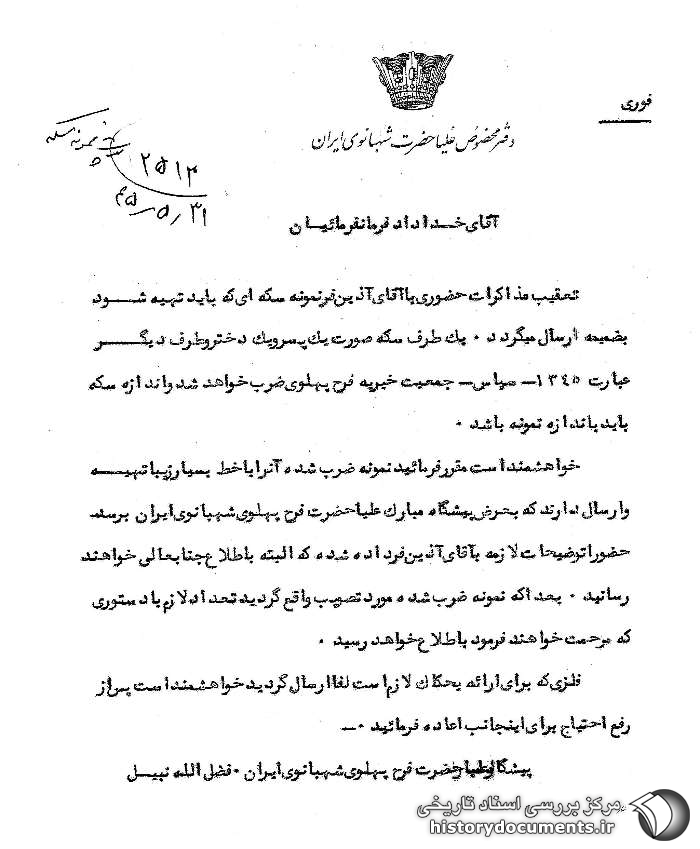 فوری
دفتر مخصوص علیاحضرت شهبانوی ایران
نمونه سکه
۲۵۱۳
۴۵ر۵ر۳۱
آقای خداداد فرمانفرمائیان
تعقیب مذاکرات حضوری با آقای آذین فر نمونه سکه ای که باید تهیه شود
بضمیمه ارسال میگردد ۰ یک طرف سکه صورت یک پسر و یک دختر و طرف دیگر
عبارت ۱۳۴۵ - سپاس - جمعیت خیریه فرح پهلوی ضرب خواهد شد و اندازه سکه
باید باندازه نمونه باشد ۰
خواهشمند است مقرر فرمائید نمونه ضرب شده آنرا با خط بسیار زیبا تهیه
و ارسال دارند که بعرض پیشگاه مبارک علیاحضرت فرح پهلوی شهبانوی ایران برسد
حضورا توضیحات لازمه بآقای آذین فر داده شده که البته باطلاع جنابعالی خواهند
رسانید ۰ بعد اکه نمونه ضرب شده مورد تصویب واقع گردید تعداد لازم با دستوری
که مرحمت خواهند فرمود باطلاع خواهد رسید ۰
فلزی که برای ارائه بحکاک لازم است لفا ارسال گردید خواهشمند است پس از
رفع احتیاج برای اینجانب اعاده فرمائید ۰-
علیاحضرت فرح پهلوی شهبانوی ایران ۰ فضل الله نبیل
مرکز بررسی اسناد تاریخی
historydocuments.ir